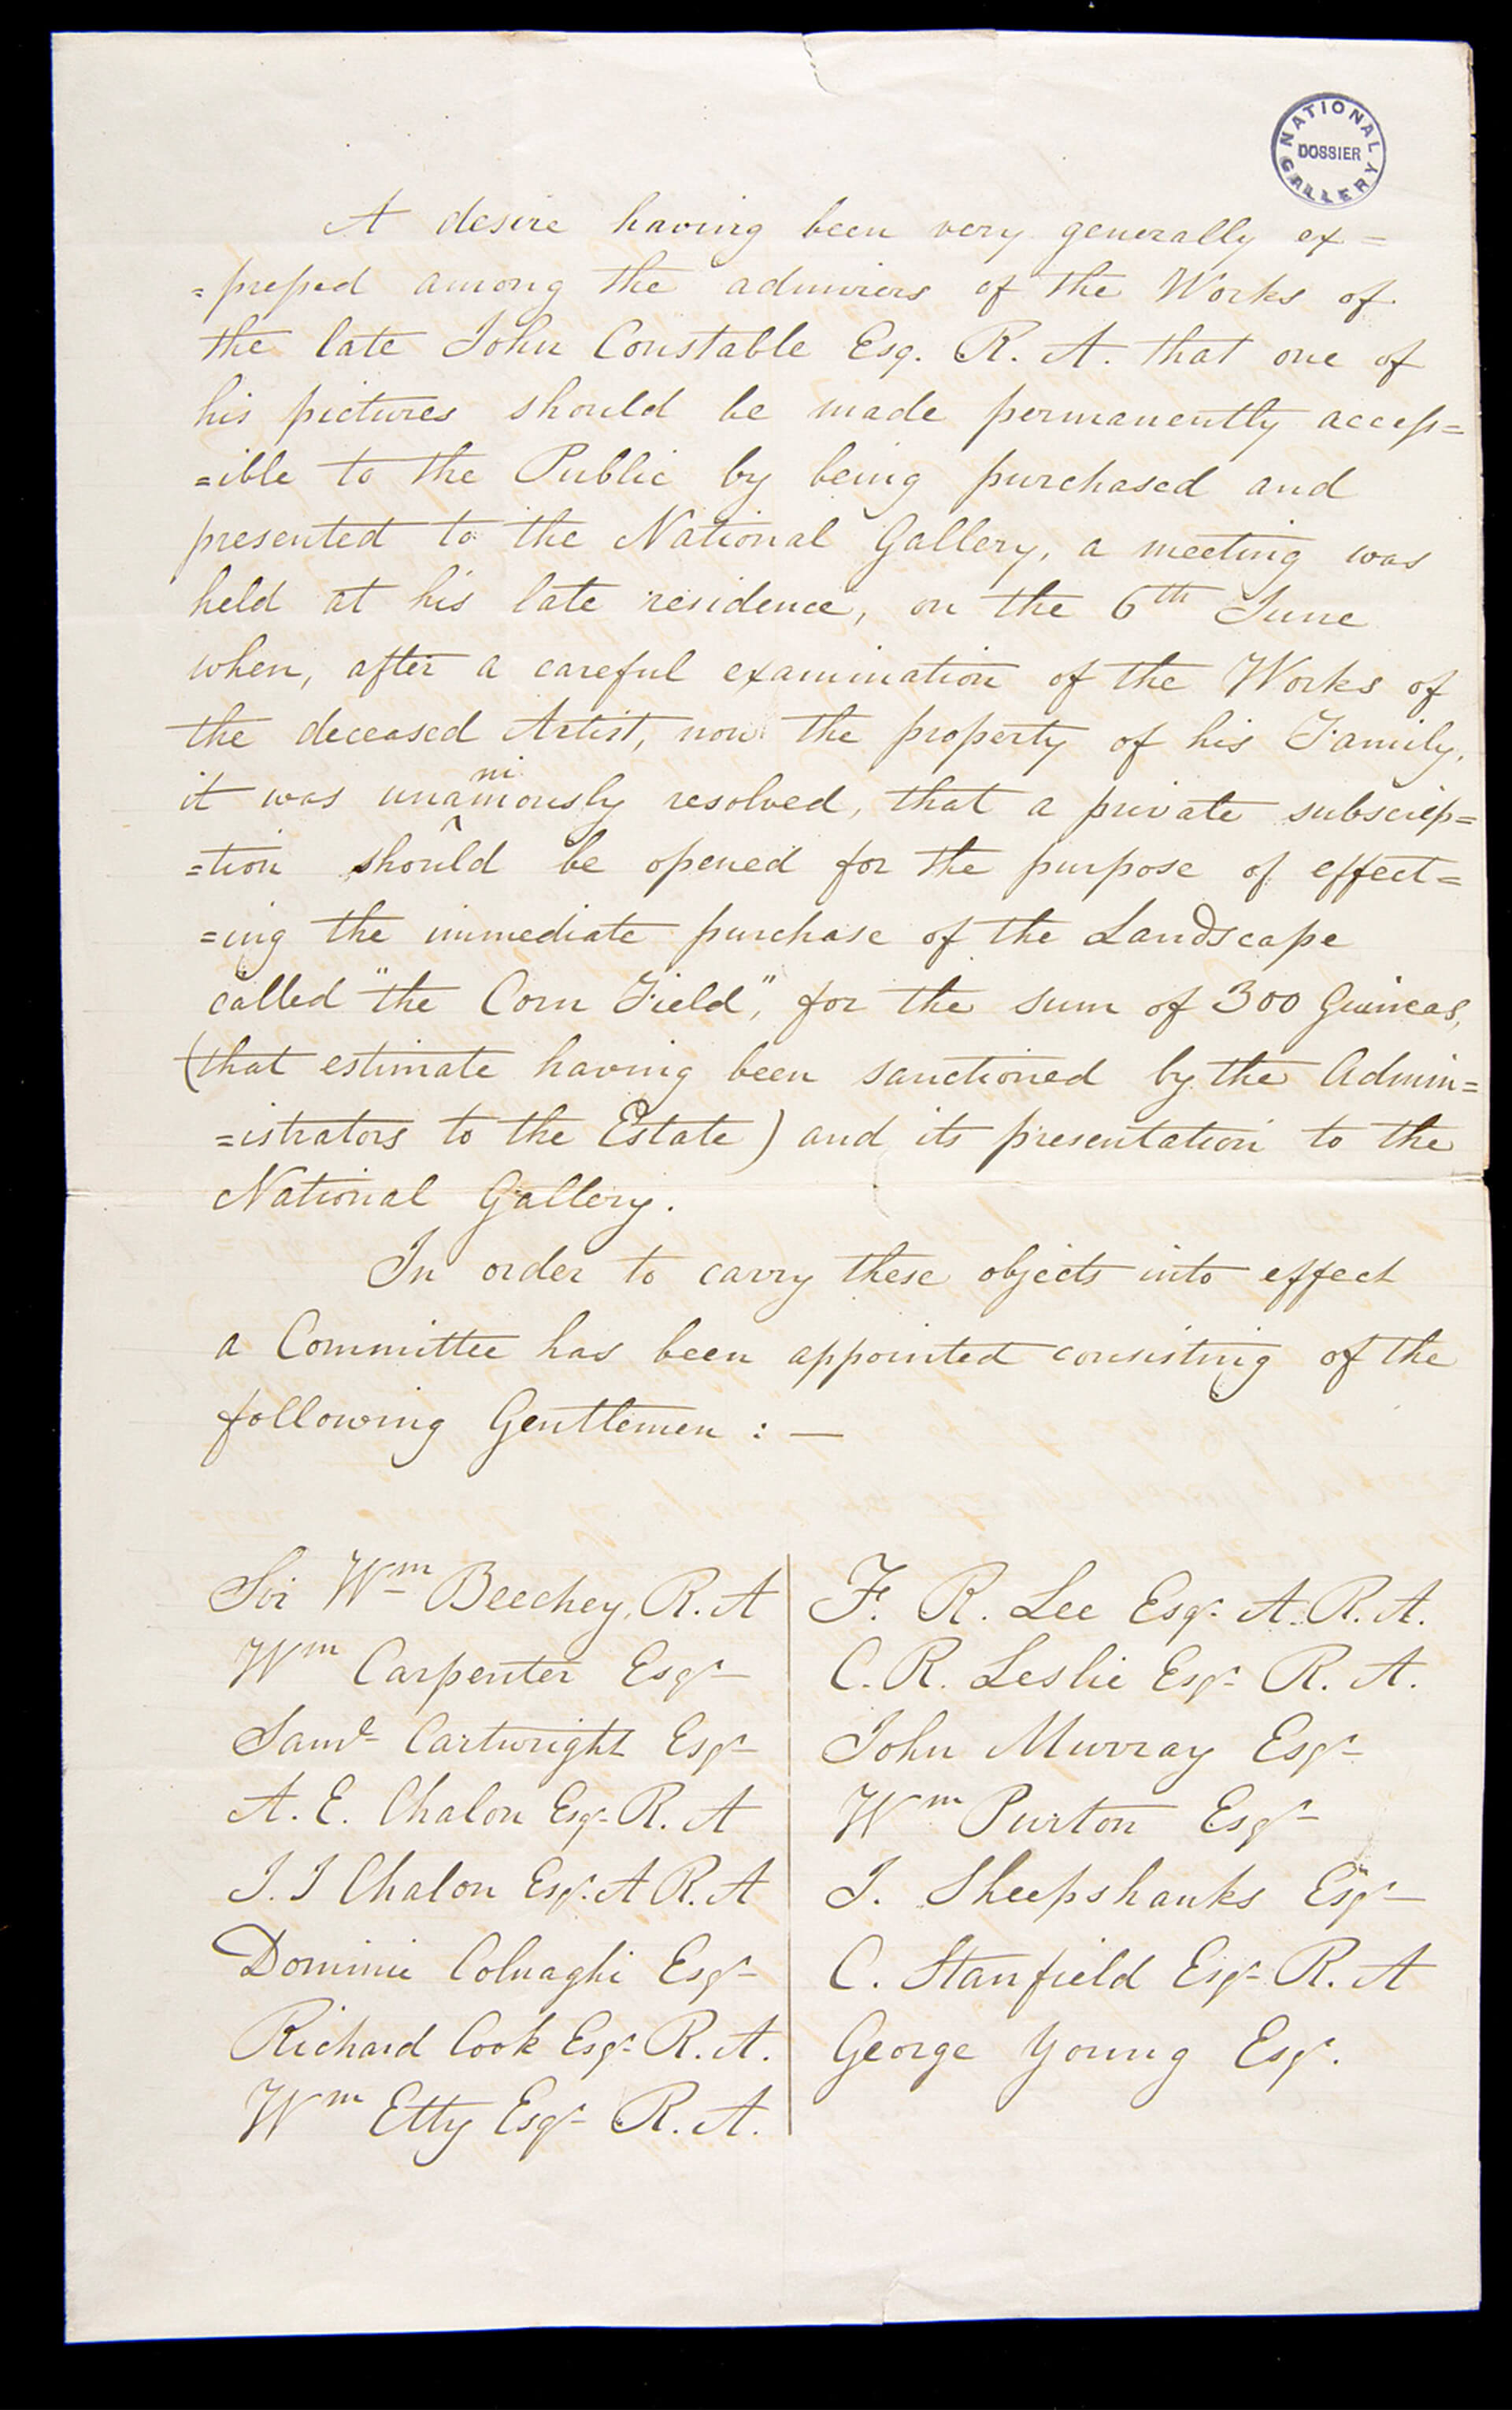 NATIONAL GALLERY
DOSSIER
A desire having been very generally ex=
=pressed among the admirers of the Works of
the late John Constable Esq. R. A. that one of
his pictures should be made permanently access=
=ible to the Public by being purchased and
presented to the National Gallery, a meeting was
held at his late residence, on the 6th June
when, after a careful examination of the Works of
the deceased Artist, now the property of his Family,
ni
it was unamously resolved, that a private subscrip=
=tion should be opened for the purpose of effect=
=ing the immediate purchase of the Landscape
called "the Corn Field", for the sum of 300 Guineas,
(that estimate having been sanctioned by the Admin=
=istrators to the Estate) and its presentation to the
National Gallery.
In order to carry these objects into effect
a Committee has been appointed consisting of the
following Gentlemen : —
Sir Wm Beechey, R. A
Wm Carpenter Esqr
Saml Cartwright Esqr
A. E. Chalon Esqr R. A
J. J Chalon Esqr. A R. A
Dominic Colnaghi Esqr
Richard Cook Esqr R. A.
Wm Etty Esqr R. A.
F. R. Lee Esqr A. R. A.
C. R. Leslie Esqr R. A.
John Murray Esqr
Wm Purton Esqr
J. Sheepshanks Esqr
C. Stanfield Esqr R. A
George Young Esqr.